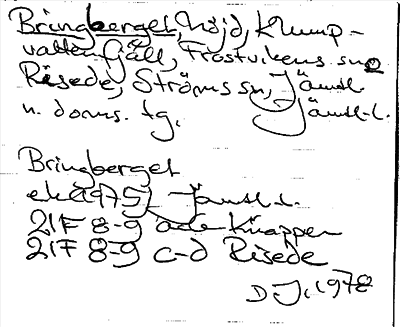 Bringberget, höjd, Klump-
vatten Gåll, Frostvikens sn o
Risede, Ströms sn, Jämtl.
n. doms. tg. Jämtl. l.
Bringberget
ek 1975, Jämtl. l.
21F 8-9 Knappen
21F 8-9 c-d Risede
D J. 1978